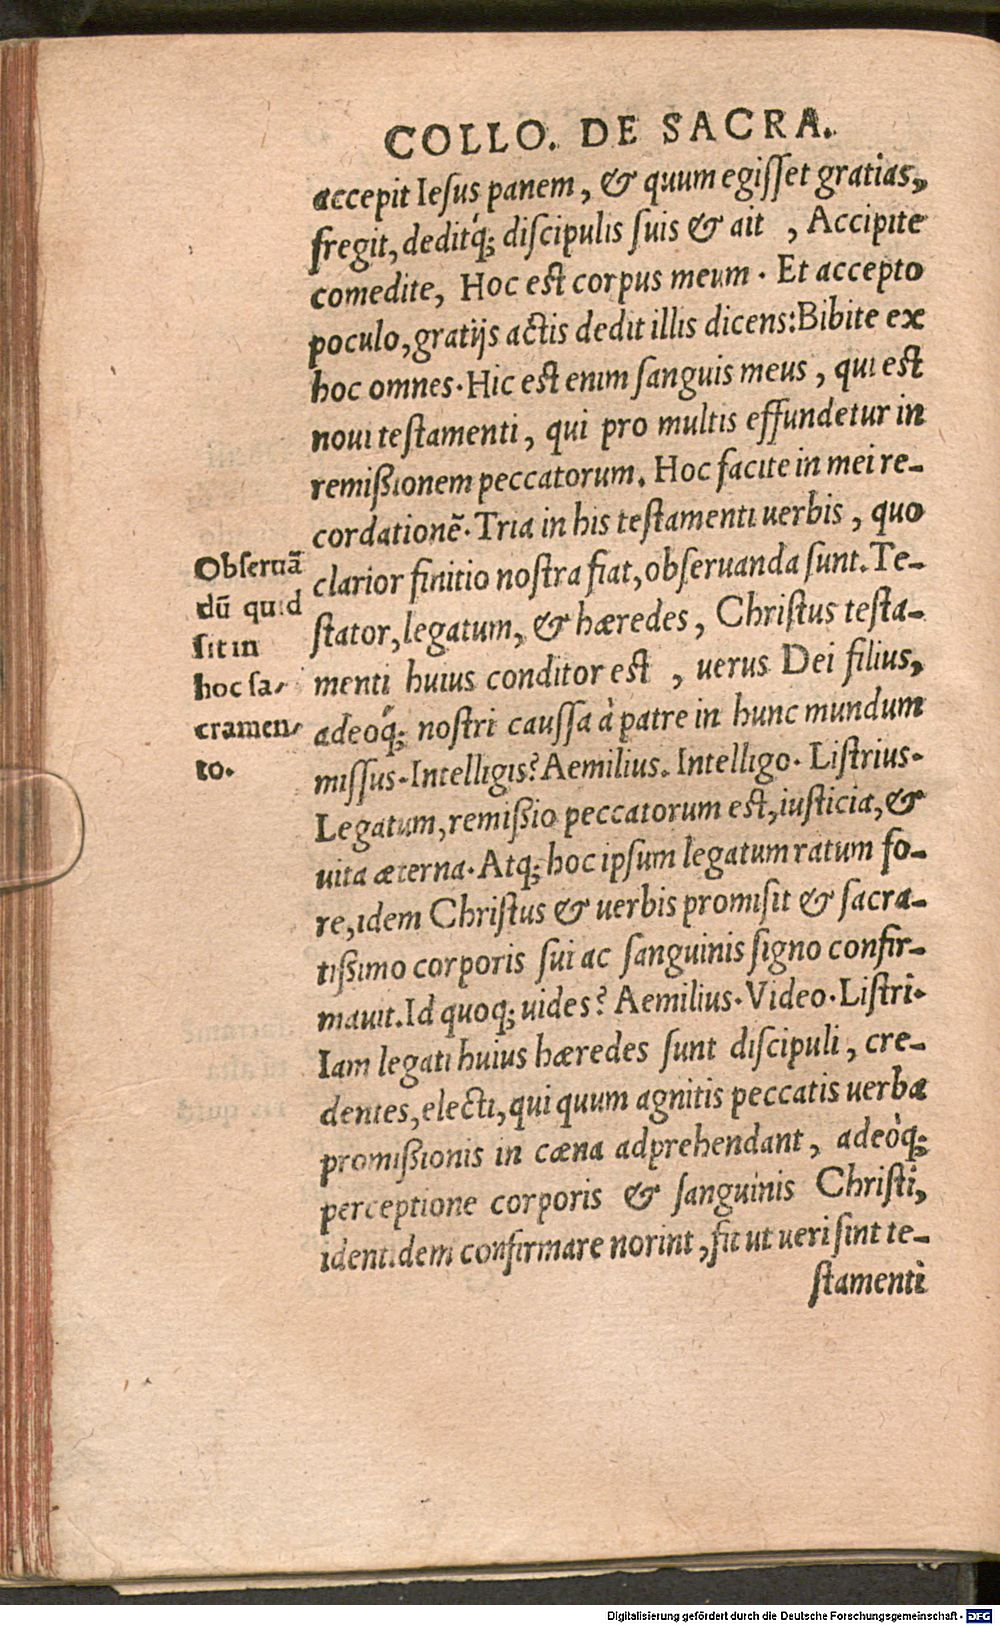 COLLO. DE SACRA.
accepit Iesus panem, & quum egisset gratias,
fregit, deditq́; discipulis suis & ait , Accipite
comedite, Hoc est corpus meum. Et accepto
poculo, gratijs actis dedit illis dicens: Bibite ex
hoc omnes. Hic est enim sanguis meus, qui est
noui testamenti, qui pro multis effundetur in
remißionem peccatorum. Hoc facite in mei re-
cordationē. Tria in his testamenti uerbis, quo
clarior finitio nostra fiat, obseruanda sunt. Te-
stator, legatum, & hæredes, Christus testa-
menti huius conditor est , uerus Dei filius,
adeoq́; nostri caussa à patre in hunc mundum
missus. Intelligis? Aemilius. Intelligo. Listrius.
Legatum, remißio peccatorum est, iusticia, &
uita æterna. Atq; hoc ipsum legatum ratum fo-
re, idem Christus & uerbis promisit & sacra-
tißimo corporis sui ac sanguinis signo confir-
mauit. Id quoq; uides? Aemilius. Video. Listri.
Iam legati huius hæredes sunt discipuli, cre-
dentes, electi, qui quum agnitis peccatis uerba
promißionis in cæna adprehendant, adeòq;
perceptione corporis & sanguinis Christi,
identidem confirmare norint, fit ut ueri sint te-
stamenti
Obseruā
dū quid
sit in
hoc sa-
cramen-
to.
Digitalisierung gefördert durch die Deutsche Forschungsgemeinschaft - DFG